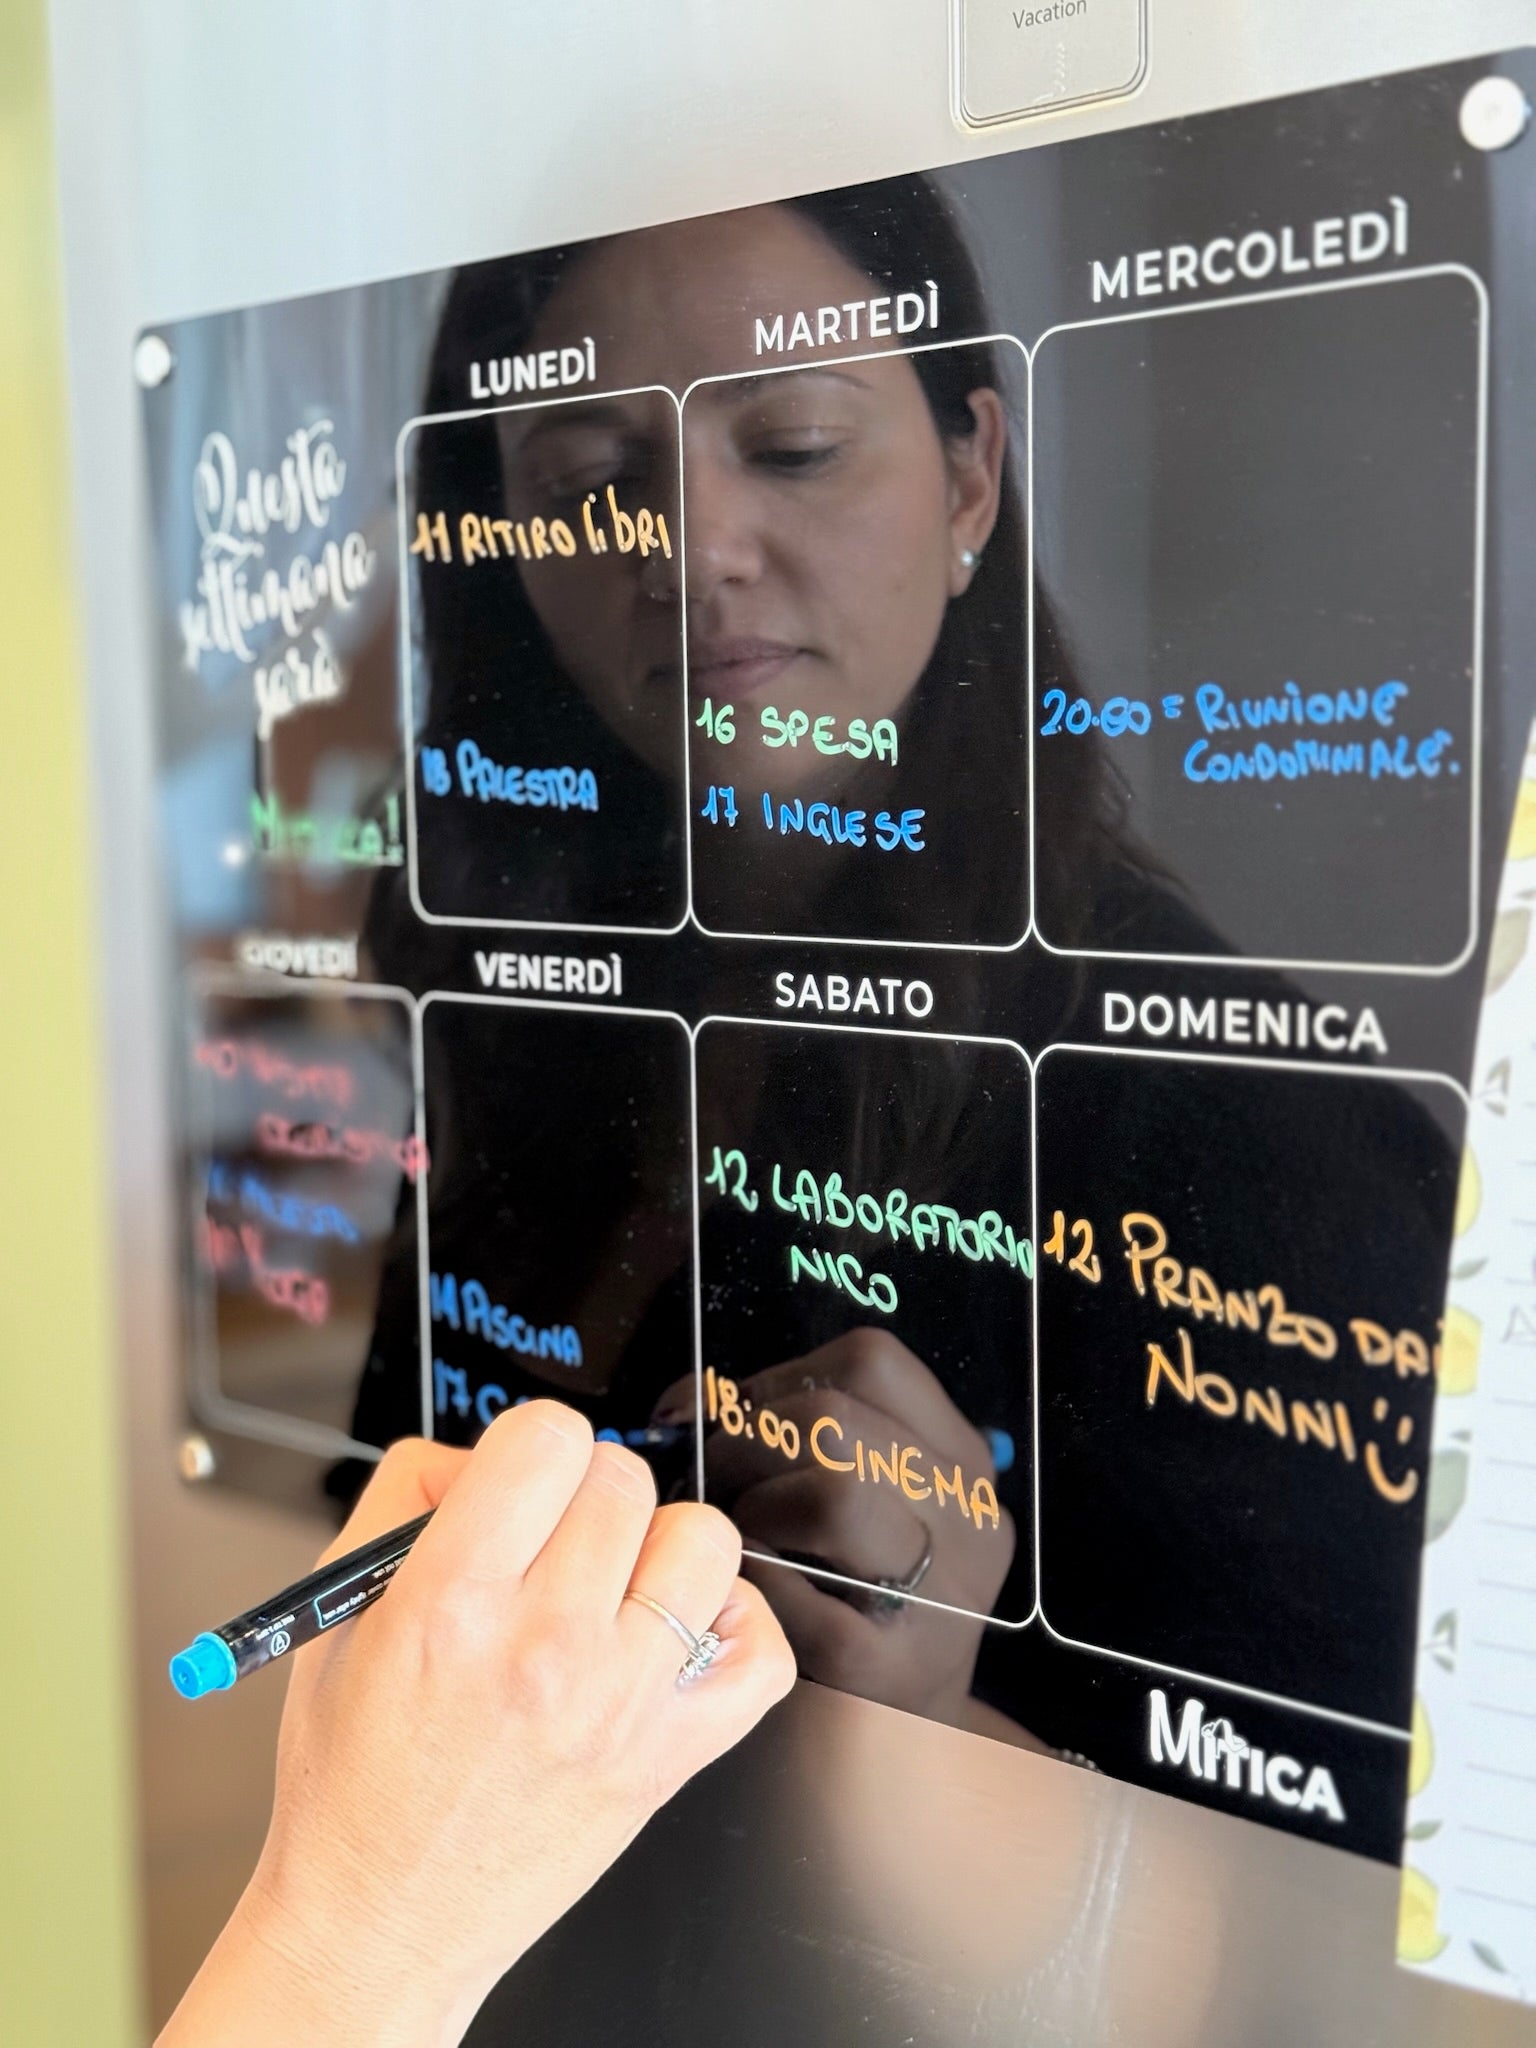 Vacation
Questa
settimana
sarà
Mitica!
LUNEDÌ
11 RITIRO libri
18 PALESTRA
MARTEDÌ
16 SPESA
17 INGLESE
MERCOLEDÌ
= RIUNIONE
CONDOMINIALE.
GIOVEDÌ
VENERDÌ
PISCINA
17
SABATO
12 LABORATORIO
NICO
18:00 CINEMA
DOMENICA
12 PRANZO DAI
NONNI :)
MITICA